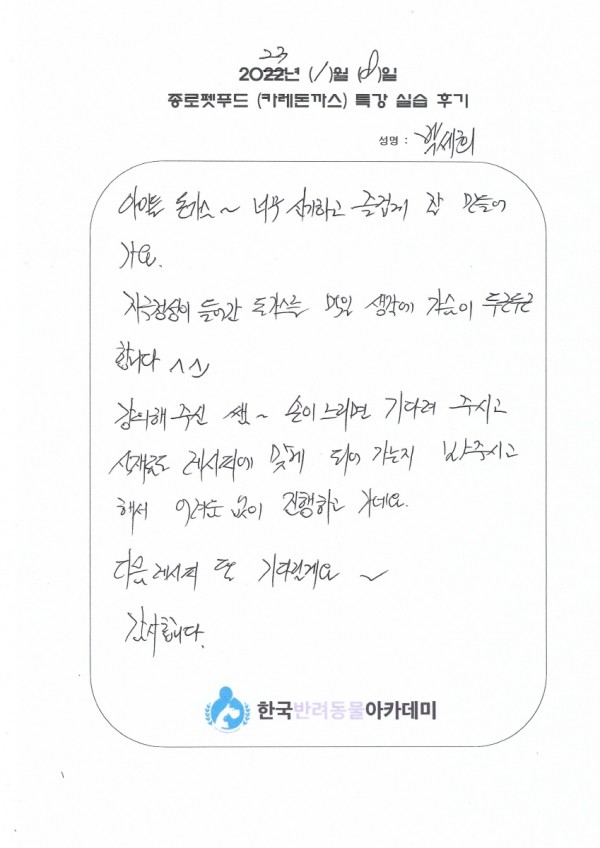 23
2022년 (1)월 ( )일
종로펫푸드 (카레돈까스) 특강 실습 후기
성명 : 박세희
아이들 돈가스~ 너무 신기하고 즐겁게 잘 만들어
가요.
지극정성이 들어간 돈가스를 먹일 생각에 가슴이 두근두근
합니다 ^^
강의해 주신 쌤~ 손이 느리면 기다려 주시고
식재료도 레시피에 맞게 되어 가는지 봐주시고
해서 어려움 없이 진행하고 가네요.
다음 레시피 또 기다릴게요~
감사합니다.
한국반려동물아카데미